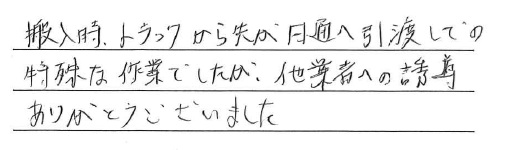 搬入時、トラックから先が日通へ引渡しての
特殊な作業でしたが、他業者への誘導
ありがとうございました